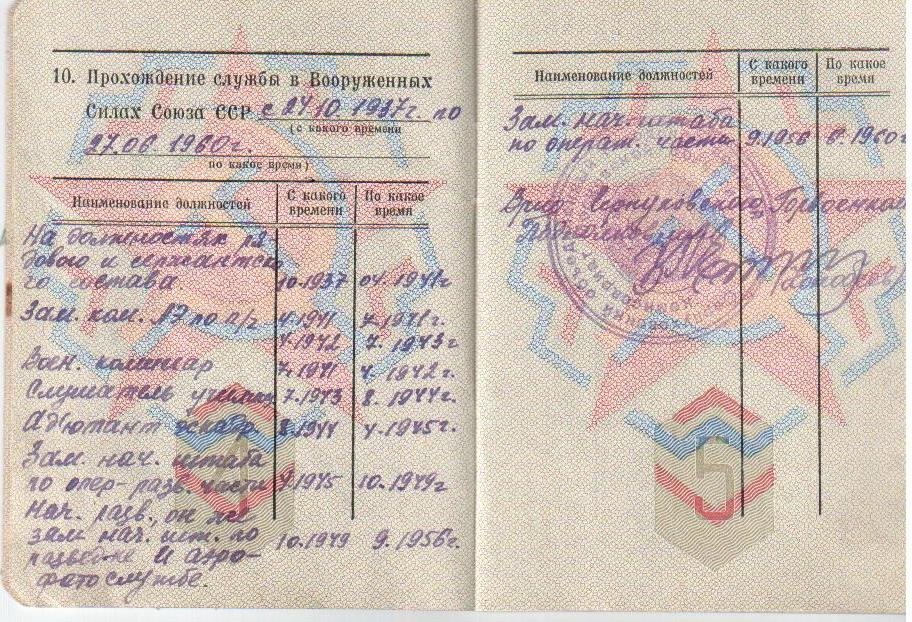 10. Прохождение службы в Вооруженных
Силах Союза ССР с 24.10.1937г. по
(с какого времени
27.06 1960г.
по какое время)
Наименование должностей С какого времени По какое время
На должностях ря-
дового и сержантско
го состава 10.1937 04.1941г
Зам. ком. по п/ч 4.1941 7.1941г.
4.1942 7.1943г
Воен. комиссар 7.1941 4.1942г.
Слушатель училища 7.1943 8.1944г.
Адъютант эскадр. 8.1944 4.1945г.
Зам. нач. штаба
по опер-разв. части 4.1945 10.1949г
Нач. разв., он же
зам. нач. шт. по 10.1949 9.1956г.
разведке и аэро-
фотослужбе.
4
Наименование должностей С какого времени По какое время
Зам. нач. штаба
по операт. части 9.1956 6.1960г
Врид Серпуховского Горвоенкома
Подполковник
5